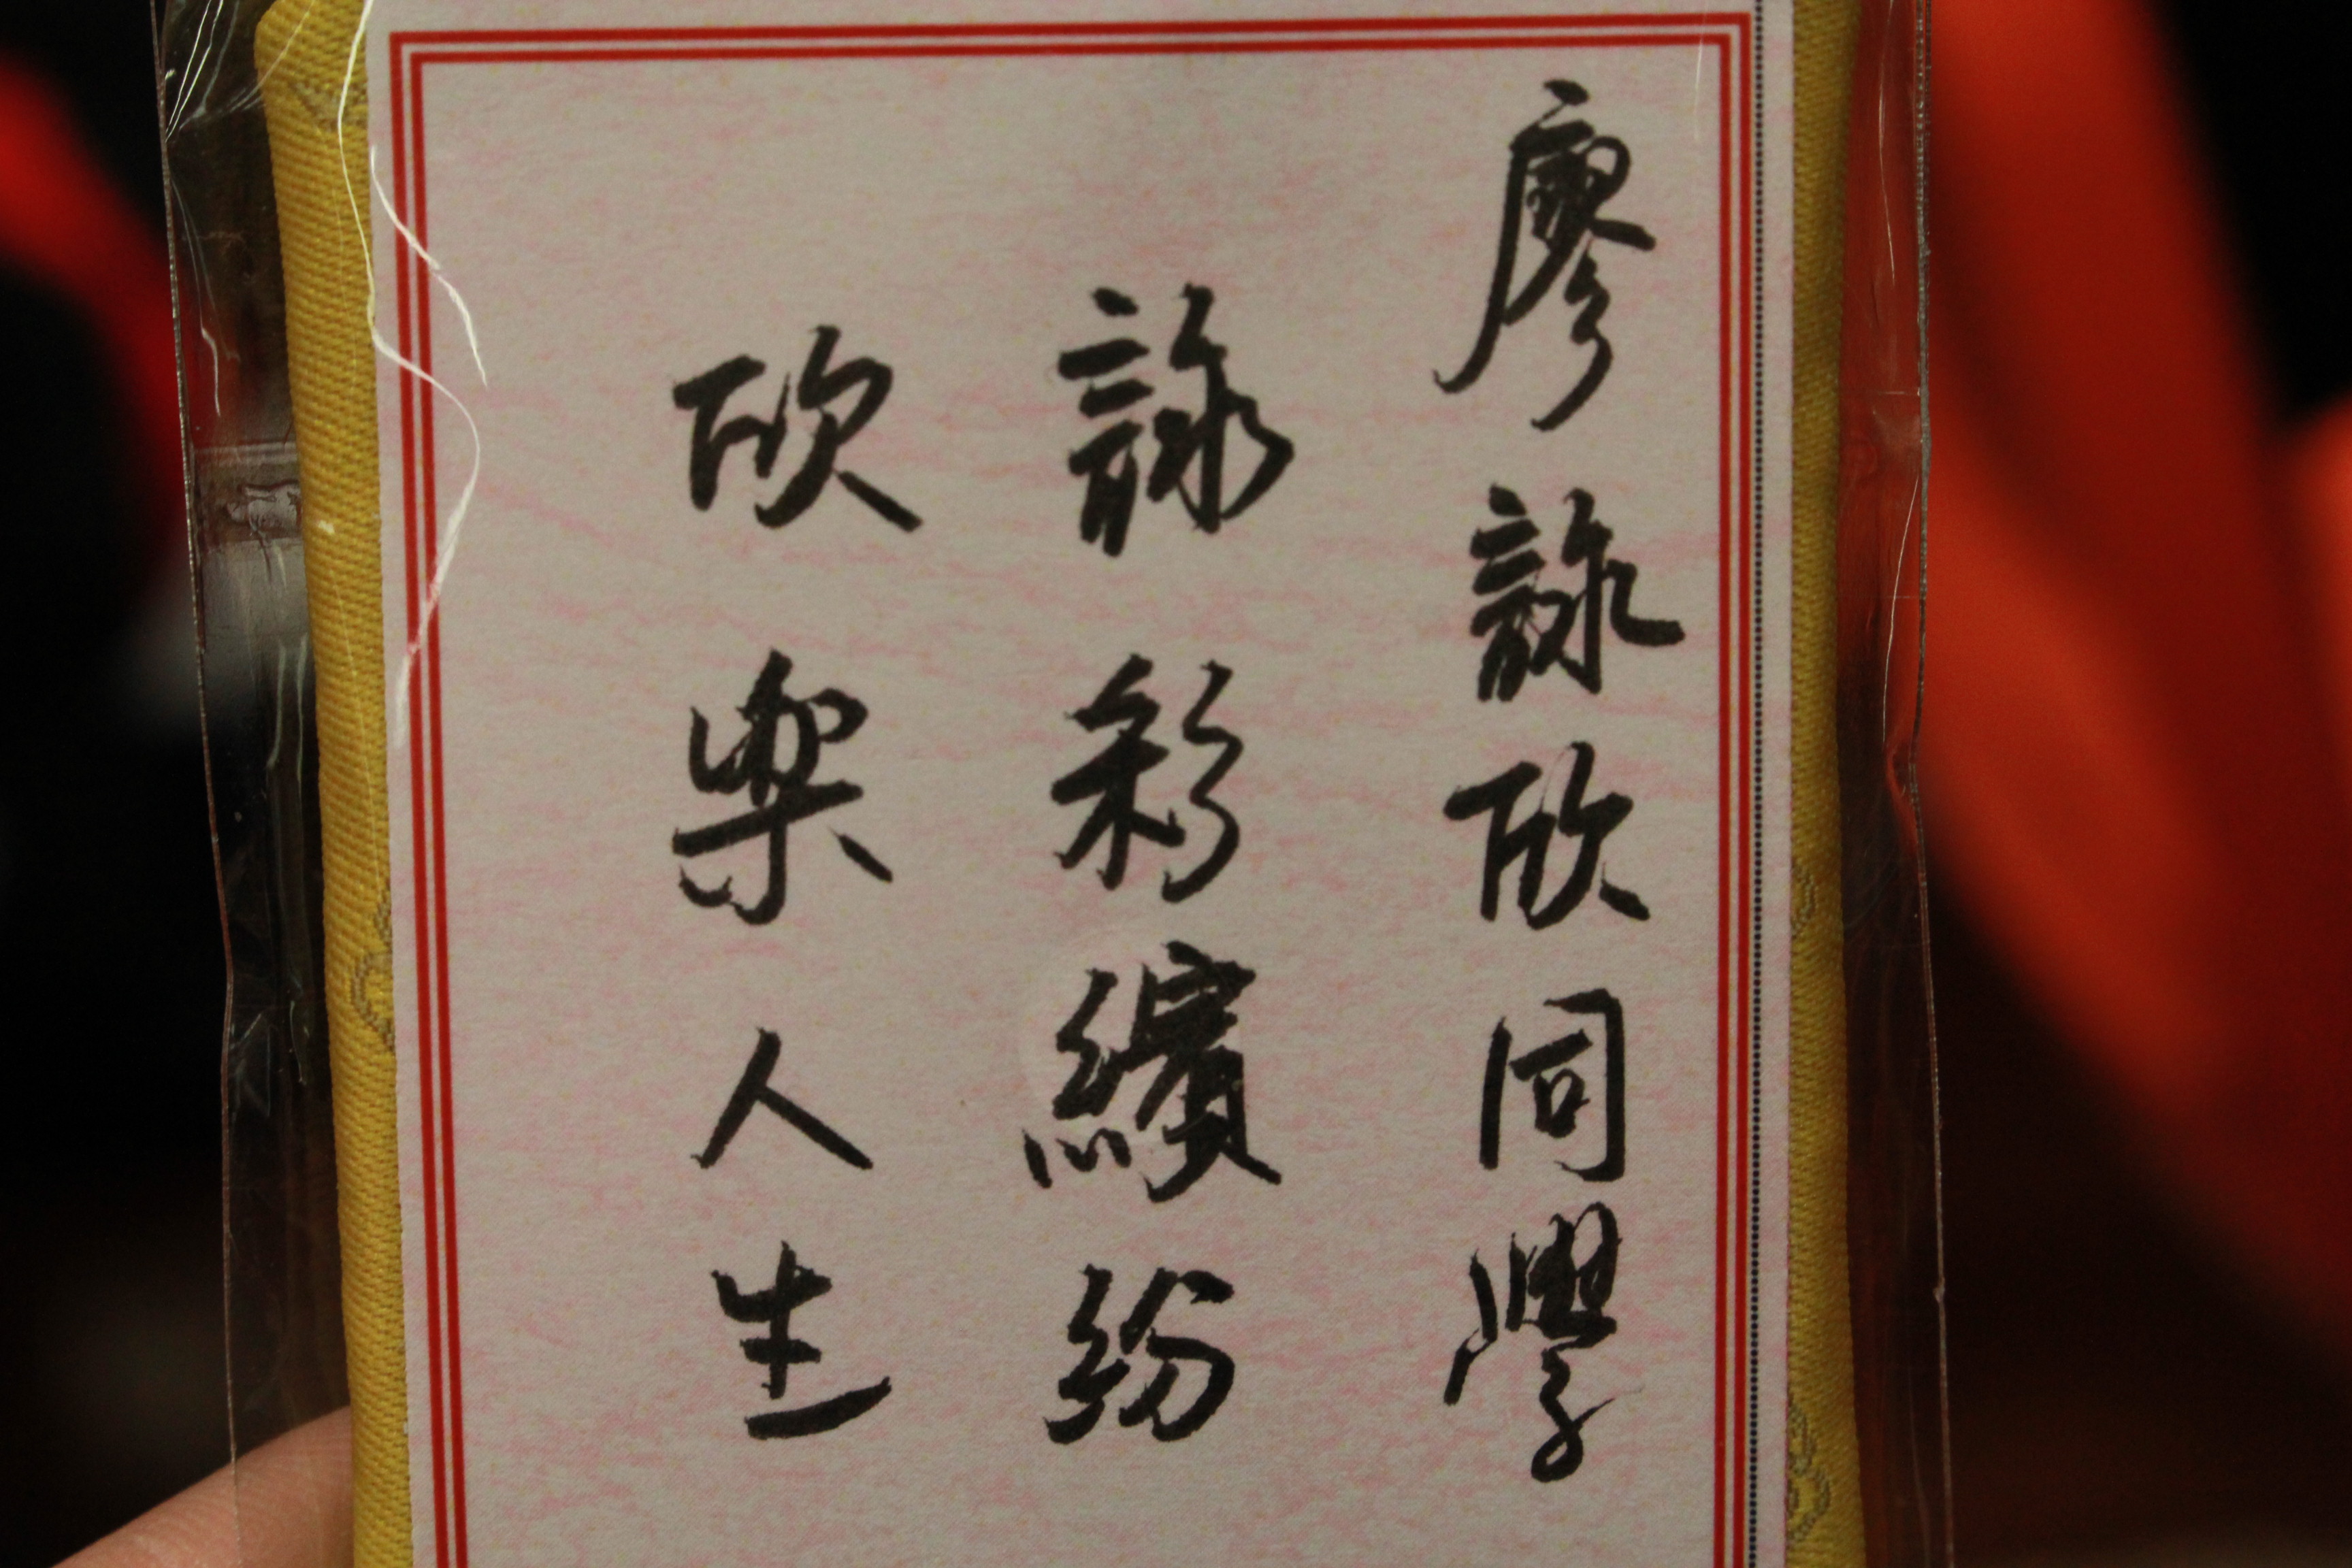 廖詠欣同學
詠彩繽紛
欣樂人生